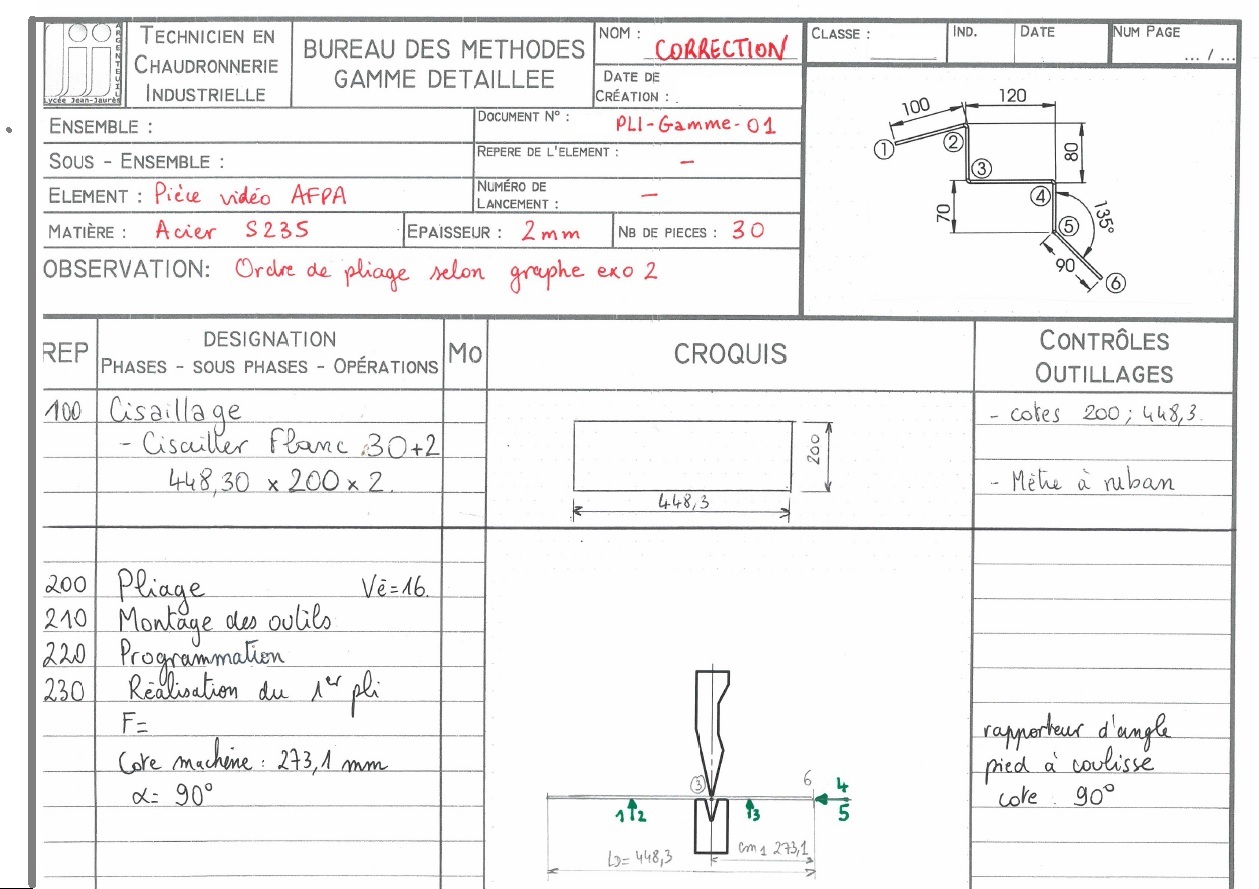 ARGENTEUIL
Lycée Jean-Jaurès
TECHNICIEN EN
CHAUDRONNERIE
INDUSTRIELLE
BUREAU DES METHODES
GAMME DETAILLEE
NOM : CORRECTION
DATE DE
CRÉATION :
CLASSE :
IND.
DATE
NUM PAGE
... / ...
ENSEMBLE :
DOCUMENT N° : PLI-Gamme-01
SOUS - ENSEMBLE :
REPERE DE L'ELEMENT : –
ELEMENT : Pièce vidéo AFPA
NUMÉRO DE
LANCEMENT : –
MATIÈRE : Acier S235
EPAISSEUR : 2mm
NB DE PIECES : 30
OBSERVATION: Ordre de pliage selon graphe exo 2
100
120
1
2
3
80
4
70
135°
5
90
6
REP
DESIGNATION
PHASES - SOUS PHASES - OPÉRATIONS
Mo
CROQUIS
CONTRÔLES
OUTILLAGES
100 Cisaillage
- Cisailler Flanc 30+2
448,30 x 200 x 2.
200
448,3
- cotes 200 ; 448,3.
- Mètre à ruban
200 Pliage Vé=16.
210 Montage des outils
220 Programmation
230 Réalisation du 1er pli
F=
Cote machine : 273,1 mm
α= 90°
3
6
1 2
3
4
5
LD= 448,3
cm1 273,1
rapporteur d'angle
pied à coulisse
cote : 90°